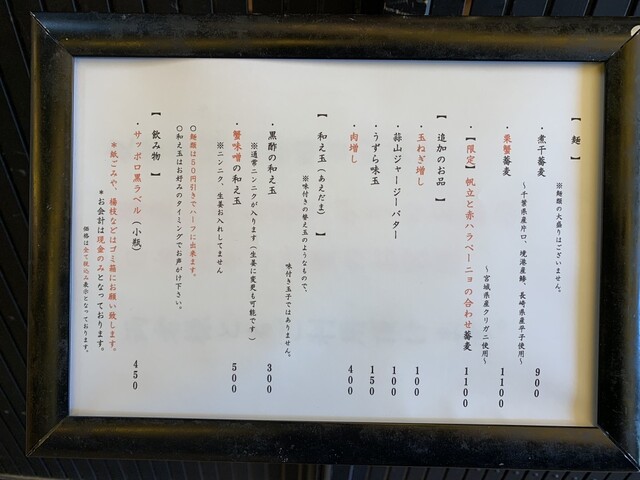 【 麺 】
※麺類の大盛りはございません。
・煮干蕎麦 900
～千葉県産片口、境港産鯵、長崎県産平子使用～
・栗蟹蕎麦 1100
～宮城県産クリガニ使用～
・【限定】帆立と赤ハラペーニョの合わせ蕎麦 1100
【 追加のお品 】
・玉ねぎ増し 100
・蒜山ジャージーバター 100
・うずら味玉 150
・肉増し 400
【 和え玉（あえだま） 】
※味付きの替え玉のようなもので、
味付き玉子ではありません。
・黒酢の和え玉 300
※通常ニンニクが入ります（生姜に変更も可能です）
・蟹味噌の和え玉 500
※ニンニク、生姜お入れしてません
〇麺類は50円引きでハーフに出来ます。
〇和え玉はお好みのタイミングでお声がけ下さい。
【 飲み物 】
・サッポロ黒ラベル（小瓶） 450
*紙ごみや、楊枝などはゴミ箱にお願い致します。
*お会計は現金のみとなっております。
価格は全て税込み表示となっております。